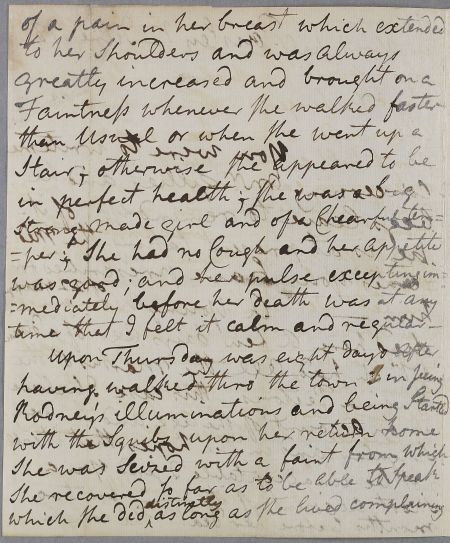 of a pain in her breast which extended
to her Shoulders and was always
greatly increased and brought on a
Faintness whenever she walked faster
than Usual or when she went up a
Stair; otherwise she appeared to be
in perfect health; she was a big
strong made girl and of a Chearful tem=
=per; She had no Cough and her appetite
was good; and her pulse excepting im=
=mediately before her death was at any
time that I felt it calm and regular
Upon Thursday was eight days after
having walked thro the town in
Rodney's illuminations and being Startled
with the Squibs upon her return home
She was Seized with a faint from which
She recovered so far as to be able to Speak
which she did distinctly as long as she lived complaining